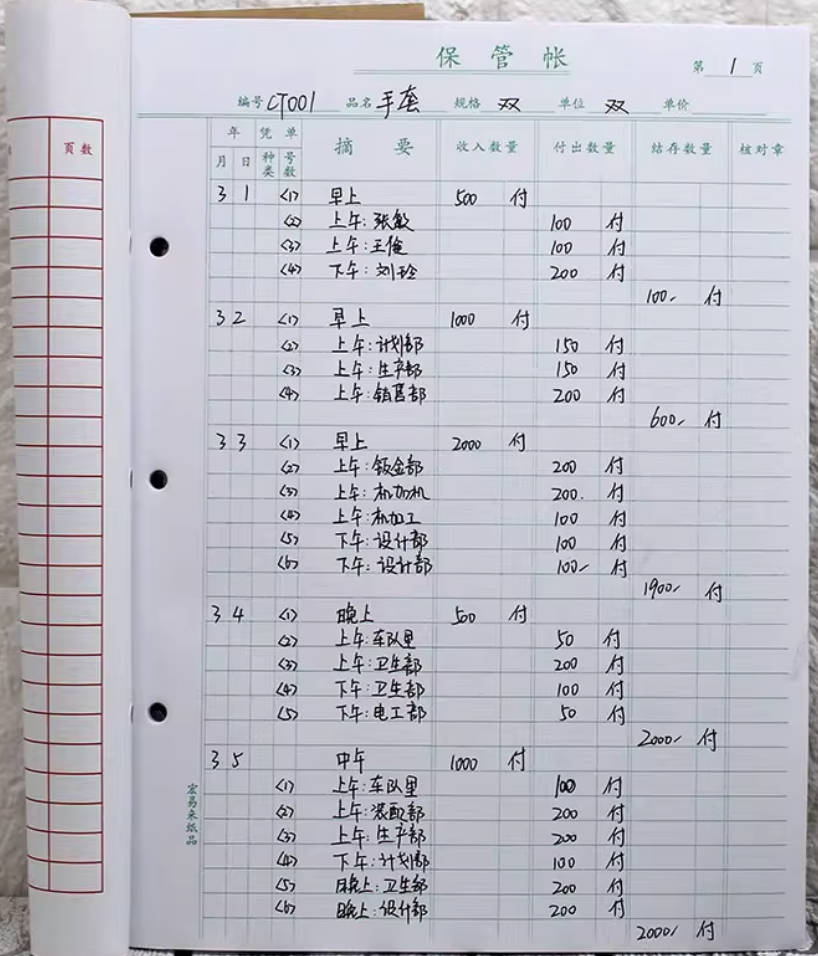 保管帐
第 1 页
编号 CT001 品名 手套 规格 双 单位 双 单价
年 凭单 摘要 收入数量 付出数量 结存数量 核对章
月 日 种类 号数
页数
3 1 <1> 早上 500 付
<2> 上午:张敏 100 付
<3> 上午:王俊 100 付
<4> 下午:刘玲 200 付
100- 付
3 2 <1> 早上 1000 付
<2> 上午:计划部 150 付
<3> 上午:生产部 150 付
<4> 上午:销售部 200 付
600- 付
3 3 <1> 早上 2000 付
<2> 上午:钣金部 200 付
<3> 上午:机加机 200. 付
<4> 上午:机加工 100 付
<5> 下午:设计部 100 付
<6> 下午:设计部 100- 付
1900- 付
3 4 <1> 晚上 500 付
<2> 上午:车队里 50 付
<3> 上午:卫生部 200 付
<4> 下午:卫生部 100 付
<5> 下午:电工部 50 付
2000- 付
3 5 中午 1000 付
<1> 上午:车队里 100 付
<2> 上午:装配部 200 付
<3> 上午:生产部 200 付
<4> 下午:计划部 100 付
<5> 晚上:卫生部 200 付
<6> 晚上:设计部 200 付
2000- 付
宏易来纸品